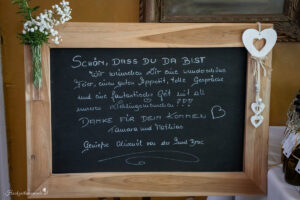 SCHÖN, DASS DU DA BIST
Wir wünschen Dir eine wunderschöne
Feier, einen guten Appetit, tolle Gespräche
und eine fantastische Zeit mit all
unseren Lieblingsmenschen!!!
DANKE FÜR DEIN KOMMEN
Tamara und Mathias
Genieße